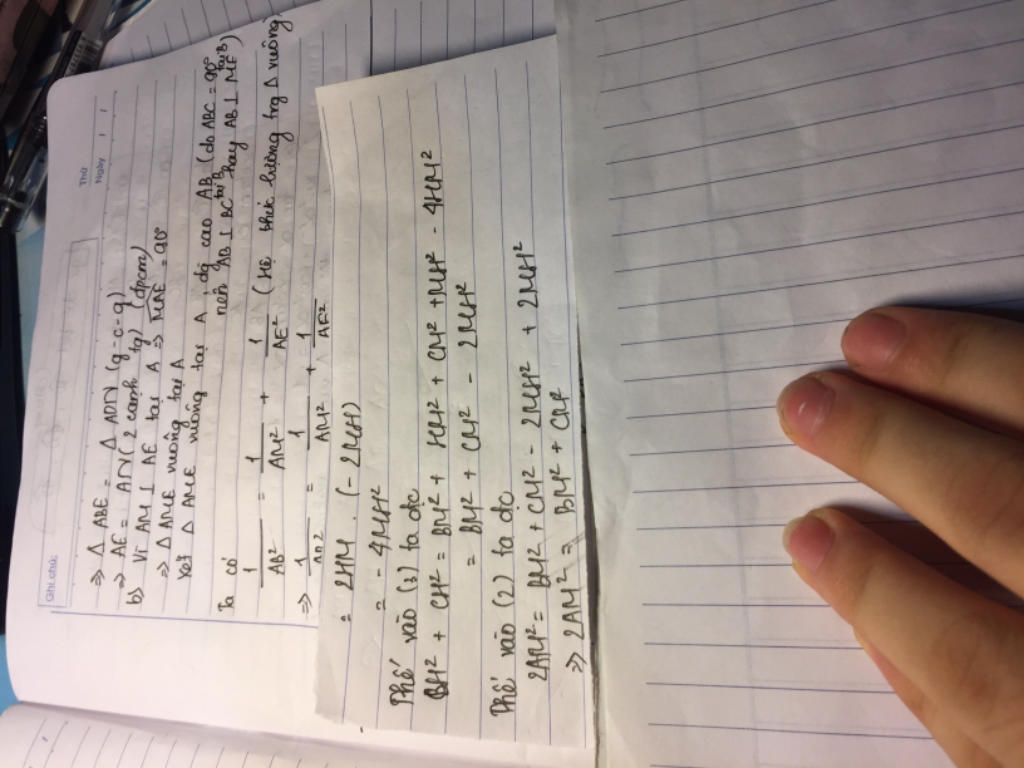 Thứ
Ngày
Ghi chú:
⇒ Δ ABE = Δ ADN (g-c-g)
⇒ AE = AN (2 cạnh tg) (đpcm)
b) Vì AM ⊥ AE tại A ⇒ MAE = 90°
⇒ Δ AME vuông tại A
Xét Δ AME vuông tại A, có cao AB (do ABC = 90°
nên AB ⊥ BC tại B hay AB ⊥ ME tại B)
Ta có
1/AB² = 1/AM² + 1/AE² (Hệ thức lượng trg Δ vuông
⇒ 1/AD² = 1/AM² + 1/AE²
= 2HM . (- 2MH)
= - 4MH²
Thế vào (3) ta dc
BH² + CH² = BM² + HM² + CM² + MH² - 4HM²
= BM² + CM² - 2MH²
Thế vào (2) ta dc
2AM² = BM² + CM² - 2MH² + 2MH²
⇒ 2AM² = BM² + CM²